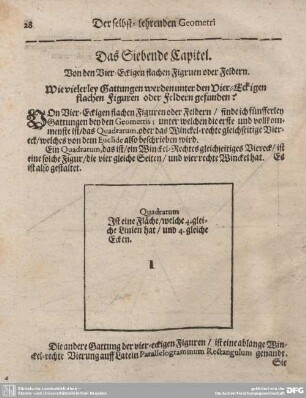 28.
Der selbst-lehrenden Geometri
Das Siebende Capitel.
Von den Vier-Eckigen flachen Figruen oder Feldern.
Wie vielerley Gattungen werden unter den Vier-Eckigen
flachen Figuren oder Feldern gefunden?
VOn Vier-Eckigen flachen Figuren oder Feldern / finde ich fünfferley
Gattungen bey den Geometris; unter welchen die erste und vollkom-
menste ist/das Quadratum, oder das Winckel-rechte gleichseitige Vier-
eck/welches von dem Euclide also beschrieben wird.
Ein Quadratum, das ist/ein Winckel-Rechtes gleichseitiges Viereck/ist
eine solche Figur/die vier gleiche Seiten/ und vier rechte Winckel hat. Es
ist also gestaltet.
Quadratum
Ist eine Fläche/welche 4.glei-
che Linien hat/und 4.gleiche
Ecken.
1.
Die andere Gattung der vier-eckigen Figuren/ ist eine ablange Win-
ckel-rechte Vierung auff Latein Parallelogrammum Rectangulum genandt.
Sie